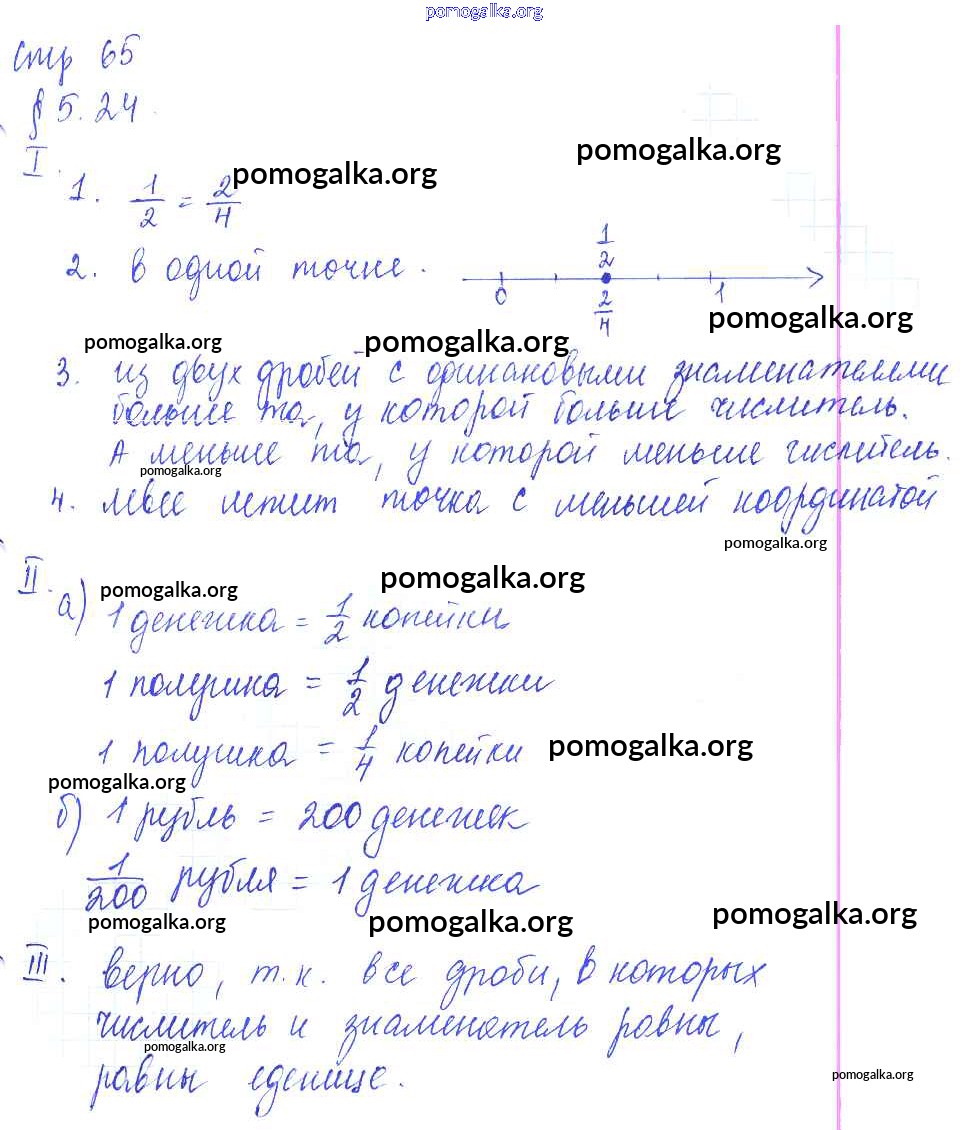 pomogalka.org
стр 65
§ 5.24.
I.
1. 1/2 = 2/4 pomogalka.org
pomogalka.org
2. в одной точке.
1/2
0 1
2/4
pomogalka.org
pomogalka.org pomogalka.org
3. из двух дробей с одинаковыми знаменателями
больше та, у которой больше числитель.
А меньше та, у которой меньше числитель.
pomogalka.org
4. левее лежит точка с меньшей координатой
pomogalka.org
II.
pomogalka.org pomogalka.org
а) 1 денежка = 1/2 копейки
1 полушка = 1/2 денежки
1 полушка = 1/4 копейки pomogalka.org
pomogalka.org
б) 1 рубль = 200 денежек
1/200 рубля = 1 денежка
pomogalka.org pomogalka.org pomogalka.org
III. верно, т.к. все дроби, в которых
числитель и знаменатель равны,
pomogalka.org
равны еденице.
pomogalka.org